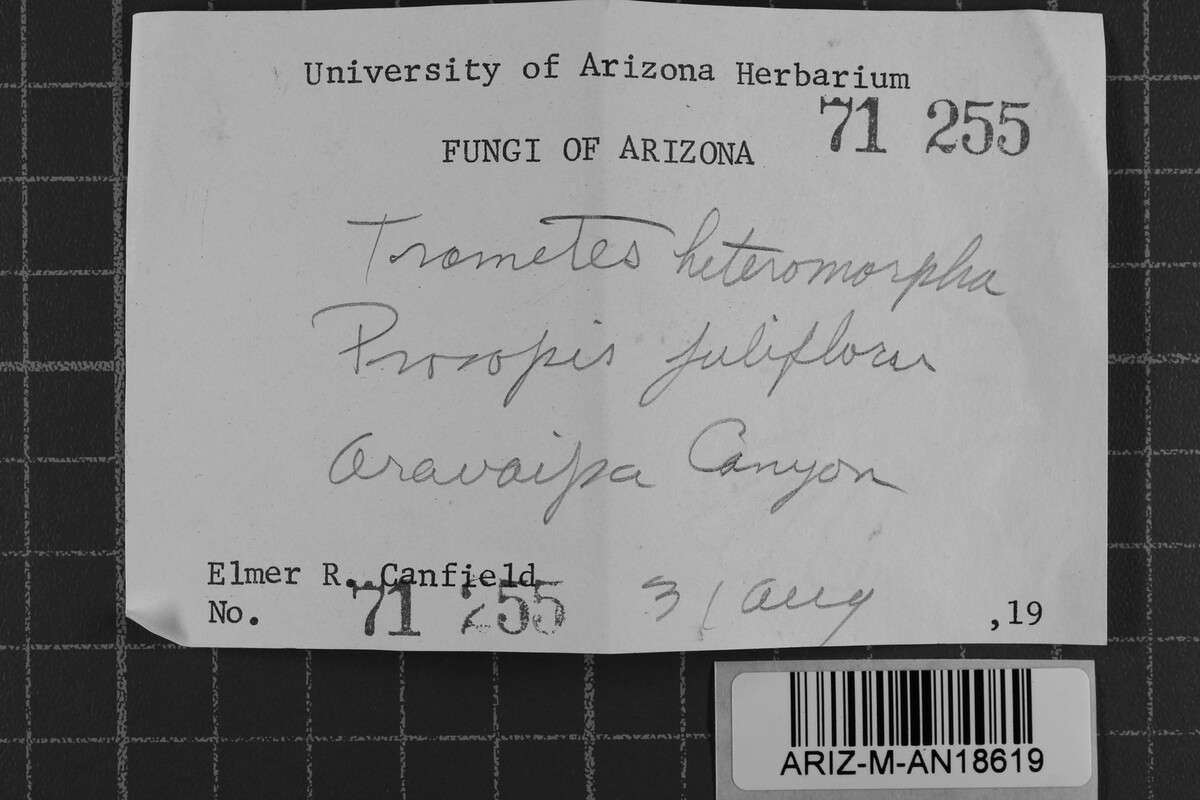 University of Arizona Herbarium
71 255
FUNGI OF ARIZONA
Trametes heteromorpha
Prosopis juliflora
Aravaipa Canyon
Elmer R. Canfield
No. 71 255 31 Aug ,19
ARIZ-M-AN18619